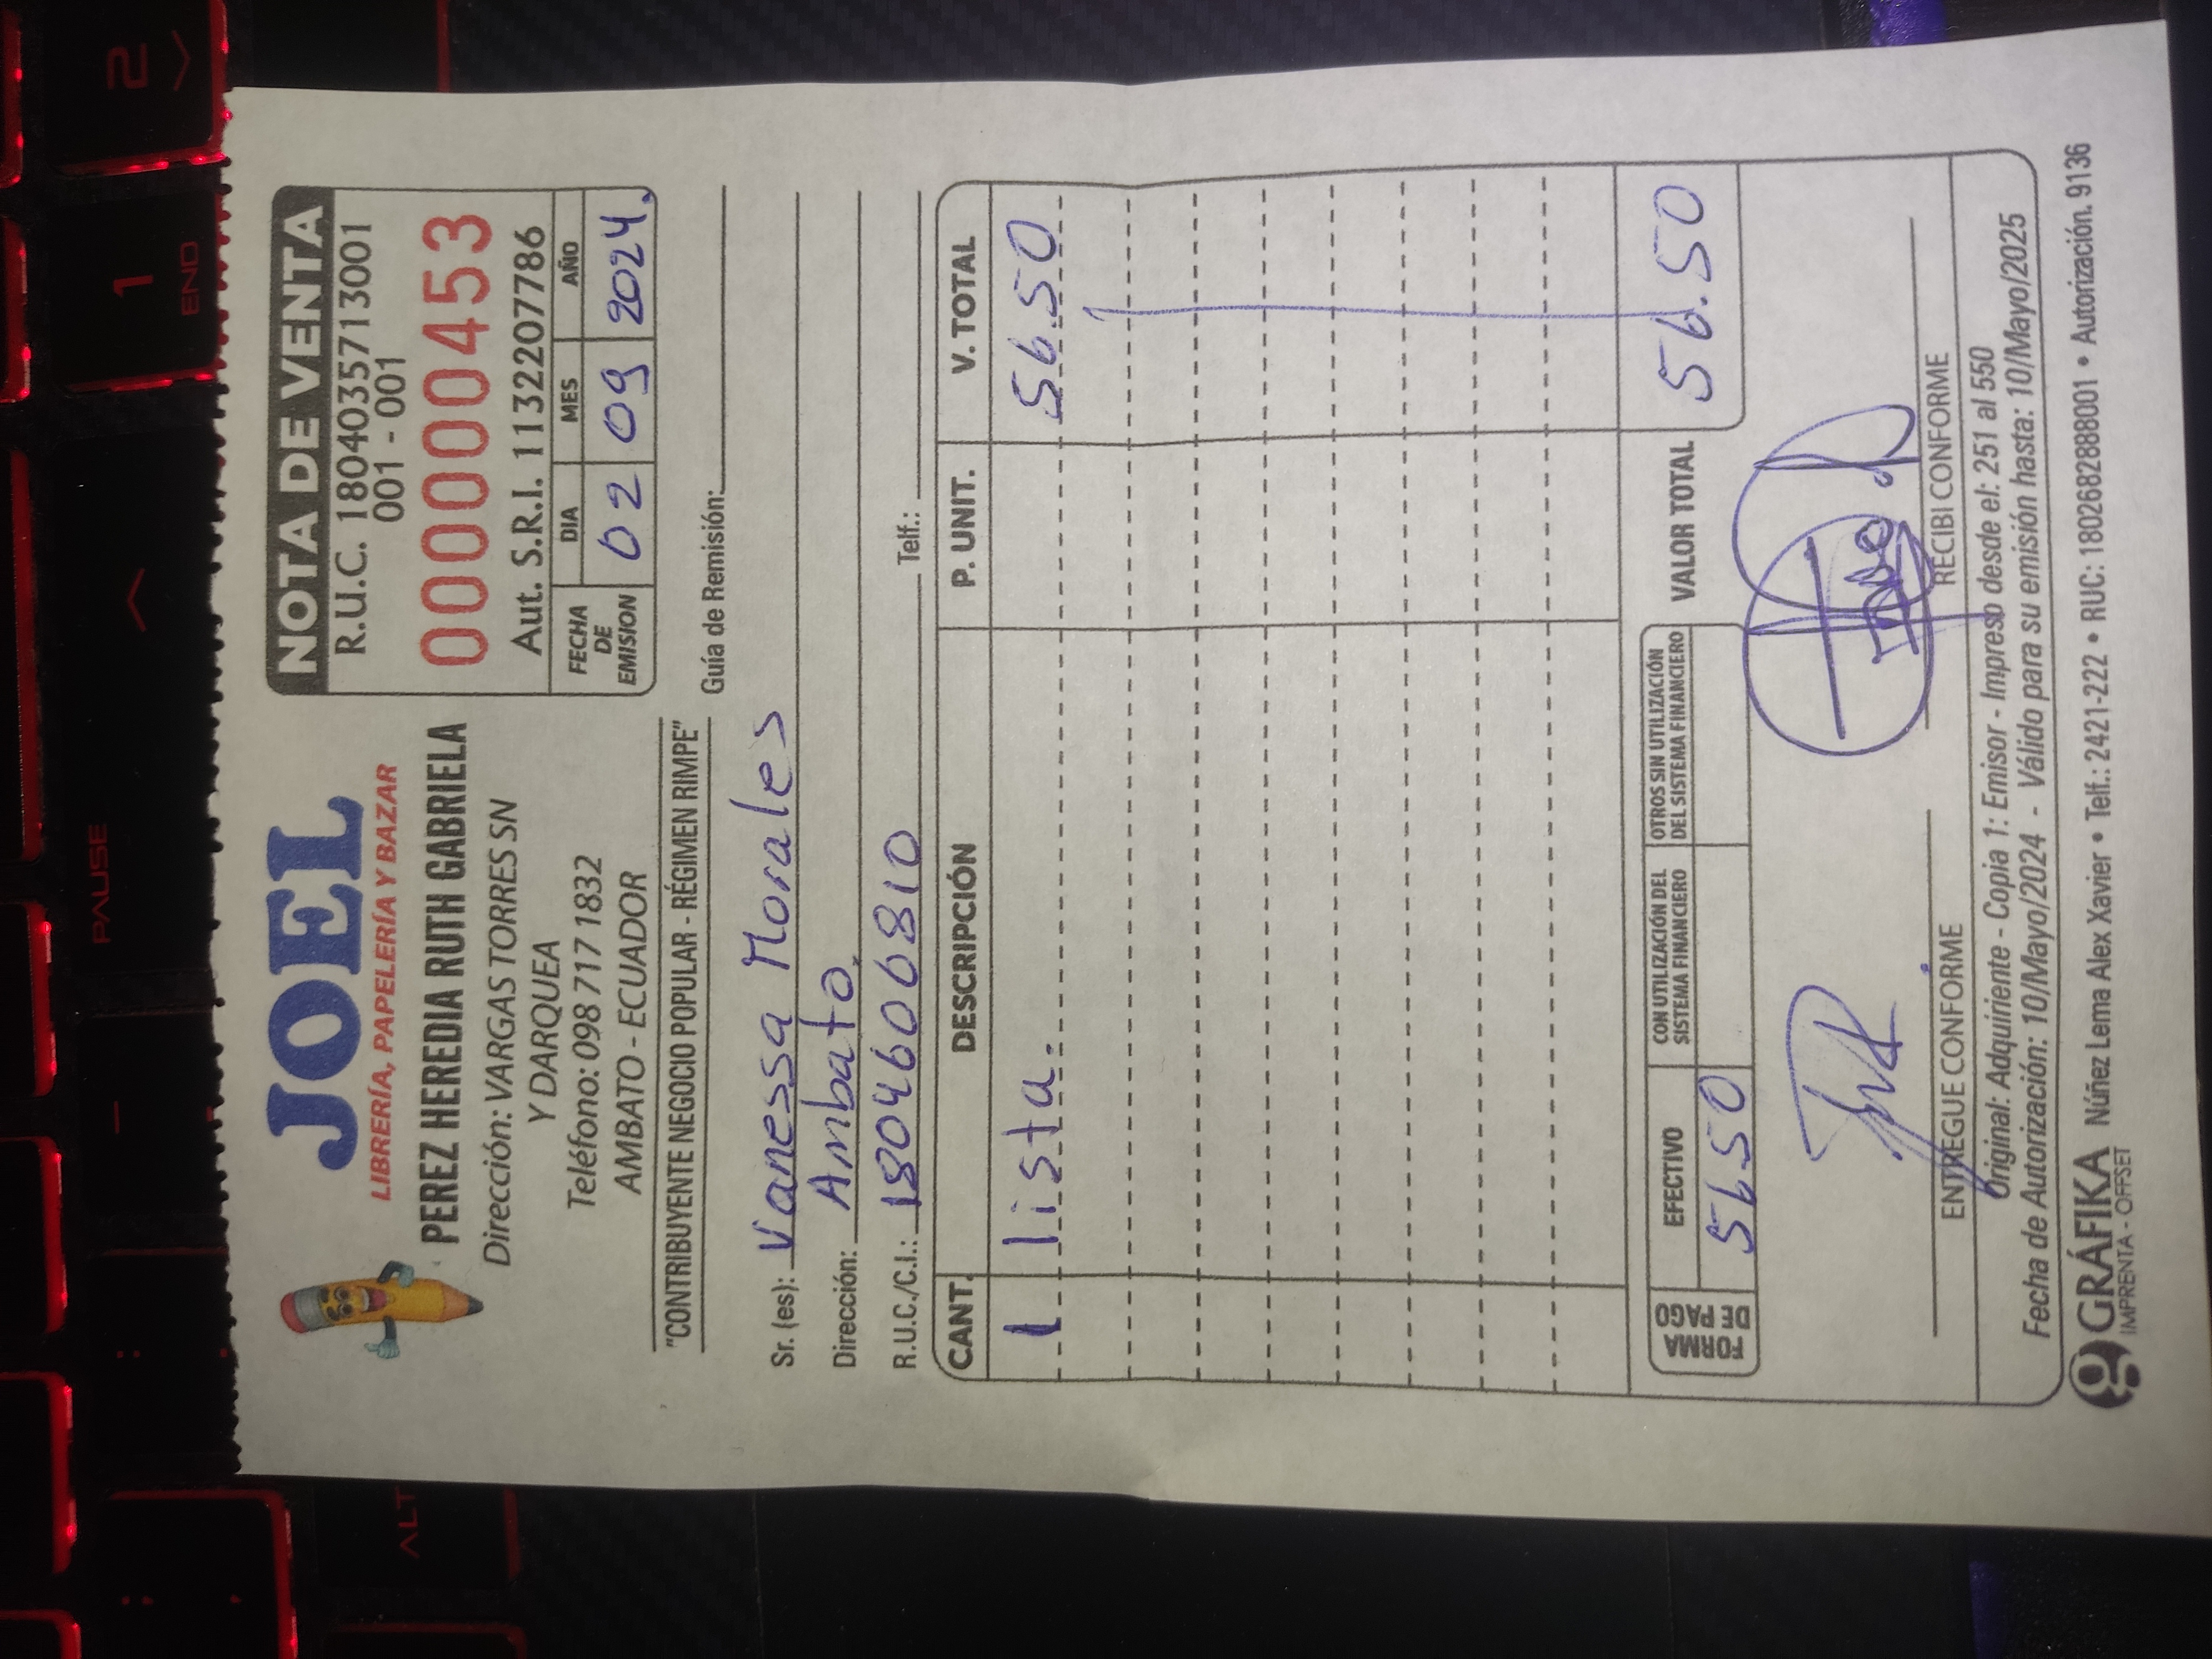 PAUSE
1
END
2
ALT
JOEL
LIBRERÍA, PAPELERÍA Y BAZAR
PEREZ HEREDIA RUTH GABRIELA
Dirección: VARGAS TORRES SN
Y DARQUEA
Teléfono: 098 717 1832
AMBATO - ECUADOR
"CONTRIBUYENTE NEGOCIO POPULAR - RÉGIMEN RIMPE"
NOTA DE VENTA
R.U.C. 1804035713001
001 - 001
000000453
Aut. S.R.I. 1132207786
FECHA DE EMISION DIA MES AÑO
02 09 2024.
Guía de Remisión:
Sr. (es): Vanessa Morales
Dirección: Ambato.
R.U.C./C.I.: 1804600810 Telf.:
CANT. DESCRIPCIÓN P. UNIT. V. TOTAL
1 lista. 56.50
FORMA DE PAGO
EFECTIVO
CON UTILIZACIÓN DEL SISTEMA FINANCIERO
OTROS SIN UTILIZACIÓN DEL SISTEMA FINANCIERO
56.50
VALOR TOTAL 56.50
ENTREGUE CONFORME RECIBI CONFORME
Original: Adquiriente - Copia 1: Emisor - Impreso desde el: 251 al 550
Fecha de Autorización: 10/Mayo/2024 - Válido para su emisión hasta: 10/Mayo/2025
GRÁFIKA
IMPRENTA - OFFSET
Núñez Lema Alex Xavier • Telf.: 2421-222 • RUC: 1802682888001 • Autorización. 9136